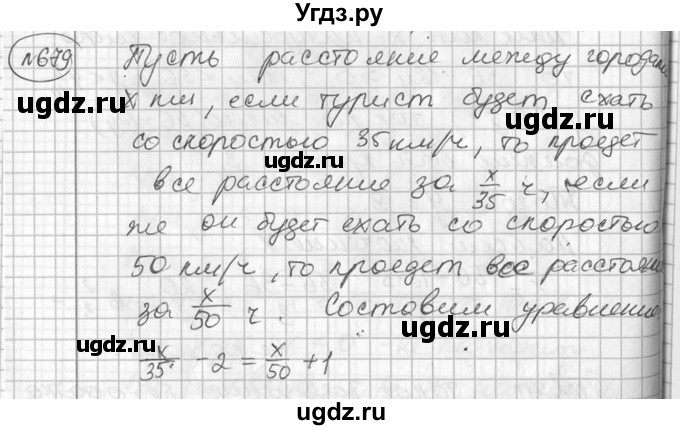 Угдз.ру
№679 Пусть расстояние между городами
x км, если турист будет ехать
со скоростью 35 км/ч, то проедет
все расстояние за x/35 ч, если
же он будет ехать со скоростью
50 км/ч, то проедет все расстояние
за x/50 ч. Составим уравнение
x/35 - 2 = x/50 + 1
ugdz.ru
ugdz.ru
ugdz.ru
ugdz.ru
ugdz.ru
ugdz.ru
ugdz.ru
ugdz.ru